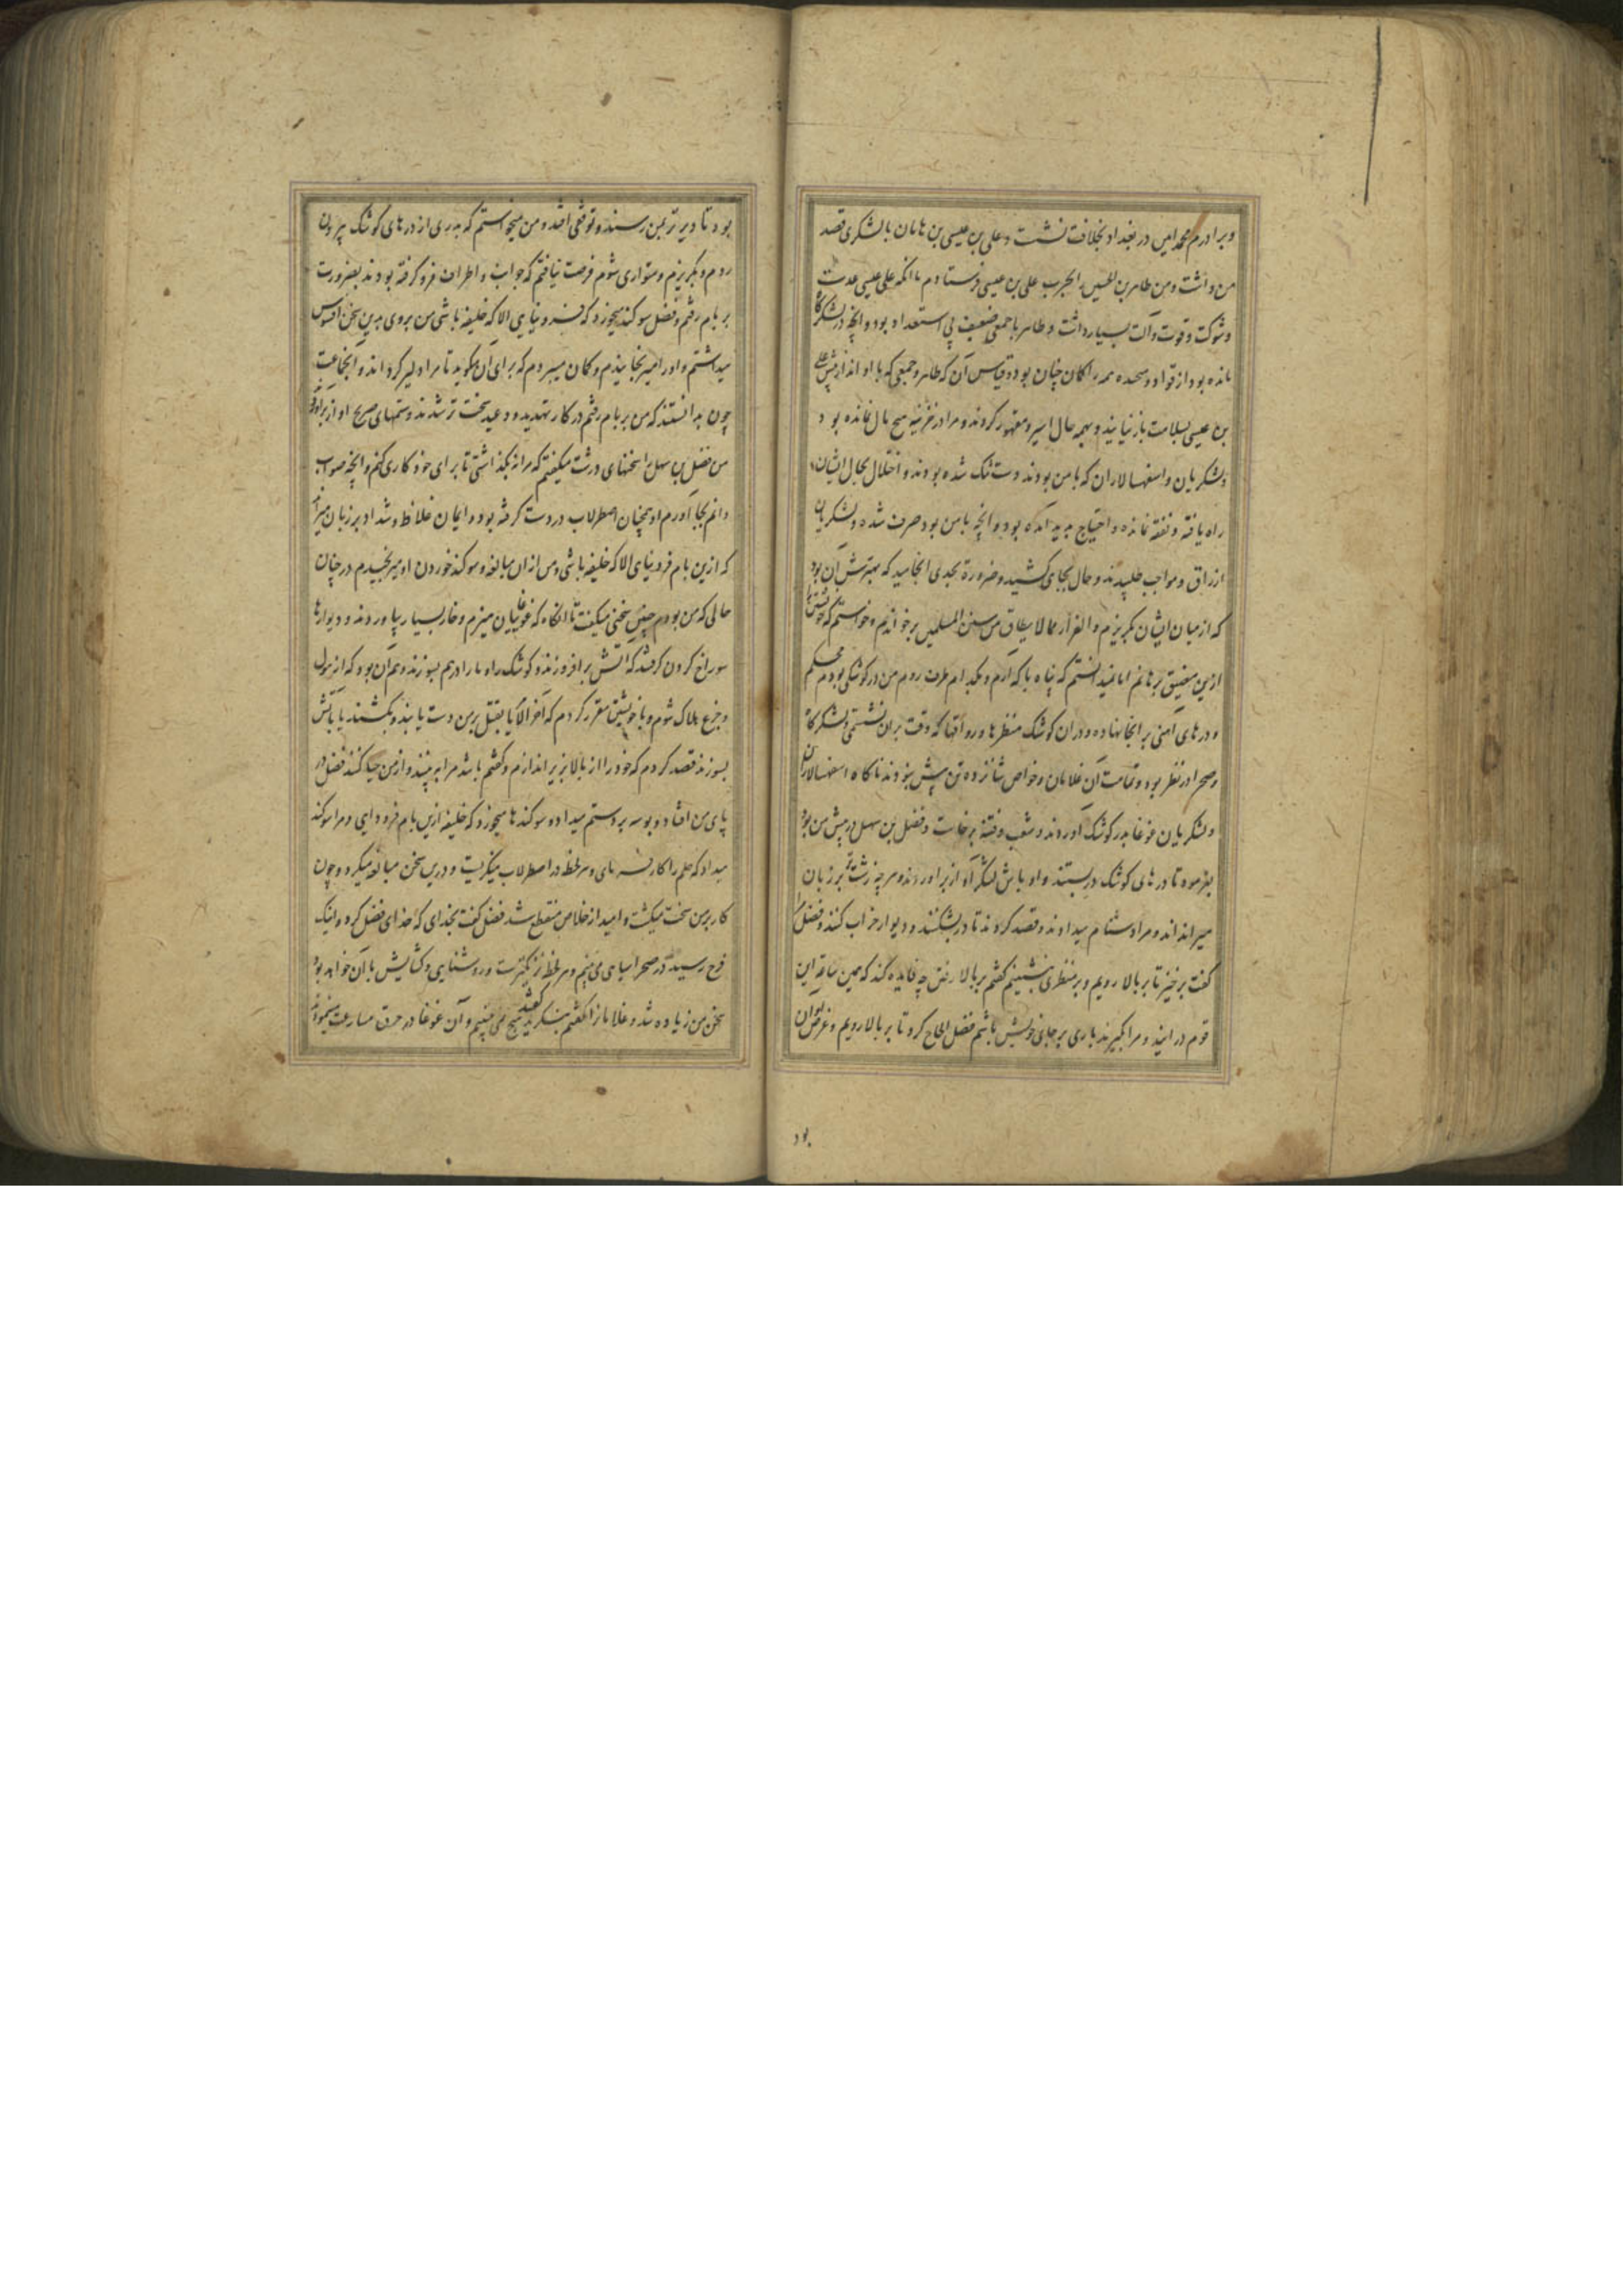 وبرادرم محمد امین در بغداد بخلافت نشست و علی بن عیسی بن هامان با لشکری قصد
من داشت و من طاهر بن الحسین را بحرب علی بن عیسی فرستادم با انکه علی عیسی عدت
و شوکت و قوت و آلت بسیار داشت و طاهر با جمعی ضعیف بی استعداد بود و انچه در لشکرگاه
مانده بود از قواد و همه را گمان چنان بود و قیاس آن که طاهر و جمعی که با او اند از پیش علی
بن عیسی بسلامت باز نیایند و بهمه حال اسیر و مقهور کردند و مرا در خزینه هیچ مال نمانده بود
و لشکریان و اسفهسالاران که با من بودند دست تنک شده بودند و اختلال بحال ایشان
راه یافته و نفقه نمانده و احتیاج پدید آمده بود و انچه با من بود صرف شده و لشکریان
ارزاق و مواجب طلبیدند و حال بجای کشید و ضرورة بحدی انجامید که بهترش آن بود
که از میان ایشان بکریزم و الفرار مما لا یطاق من سنن المسلمین برخواندیم و خواستم که خویشتن را
ازین مضیق برهانم اما نمیدانستم که پناه با که آرم و بکدام طرف روم من در کوشکی بودم محکم
و درهای آهنی بر انجا نهاده و در ان کوشک منظرها و رواقها که وقت بران نشستمی و لشکرگاه
و صحرا در نظر بود و تمامت آن غلامان و خواص شانزده تن بیش نبودند ناکاه اسفهسالاران
و لشکریان غوغا بدر کوشک آوردند و شغب و فتنه برخاست و فضل بن سهل در پیش من بود
بفرمود تا درهای کوشک دربستند و اوباش لشکر آواز برآوردند و هر چه زشت تر بر زبان
میراندند و مرا دشنام میدادند و قصد کردند تا در بشکنند و دیوار خراب کنند و فضل
کفت برخیز تا بر بالا رویم و بر منظری بنشینیم کفتم بر بالا رفتن چه فایده کند که همین ساعة این
قوم درایند و مرا بکیرند باری بر جای خویش باشم فضل الحاح کرد تا بر بالا رویم و غرض او آن
بود
بود تا دیرتر بمن رسند و توقفی افتد و من میخواستم که بدری از درهای کوشک بیرون
روم و بکریزم و متواری شوم فرصت نیافتم که جوانب و اطراف فرو کرفته بودند بضرورت
بر بام رفتم و فضل سوکند میخورد که فرو نیایی الا که خلیفه باشی من بروی بدین سخن افسوس
میداشتم و او را میرنجانیدم و کمان میبردم که برای آن میکوید تا مرا دلیر کرداند و آنجماعت
چون بدانستند که من بر بام رفتم در کار تهدید و وعید سخت تر شدند و شتمهای صریح
من فضل بن سهل را سخنهای درشت میکفتم که مرا نکذاشتی تا برای خود کاری کنم و انچه صواب
دانم بجا آورم او همچنان اصطرلاب در دست کرفته بود و ایمان غلاظ و شداد بر زبان میراند
که ازین بام فرو نیای الا که خلیفه باشی و من ازان مبالغه و سوکند خوردن او میرنجیدم در چنان
حالی که من بودم چنین سخنی میکفت تا انکاه که غوغاییان هیزم و خار بسیار بیاوردند و دیوارها
سوراخ کردن کرفتند که اتش برافروزند و کوشک را و ما را درهم بسوزند و بیم آن بود که از هول
و جزع هلاک شوم و با خویشتن مقرر کردم که آخر الامر یا بقتل بر من دست یابند و بکشند یا باتش
بسوزند قصد کردم که خود را از بالا بزیر اندازم و کفتم باشد مرا ببینند و از من حیا کنند فضل در
پای من افتاد و بوسه بر دستم میداد و سوکندها میخورد که خلیفه ازین بام فرود آیی و مرا سوکند
میداد که حلم را کار فرمای و هر لحظه در اصطرلاب مینکریست و درین سخن مبالغه میکرد و چون
کار بر من سخت میکشت و امید از خلاص منقطع شد فضل کفت بخدای که خدای فضل کرد و اینک
فرج رسید در صحرا سیاهی می بینم و هر لحظه نزدیکترست و روشنایی و کشایش با آن خواهد بود
سخن من زیاده شد و غلامانرا کفتم بنکرید کفتند هیچ نمی بینیم و آن غوغا در حرق مسارعت مینمودند